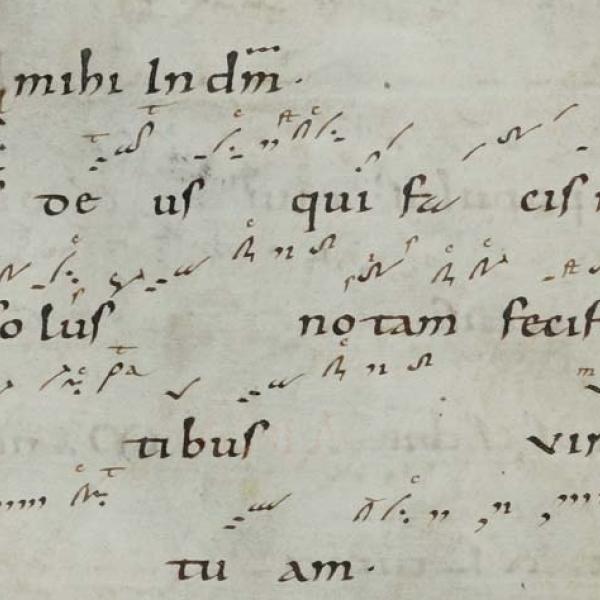 mihi In dm̄.
de us qui fa cis
lus notam fecis
tibus vir
tu am.